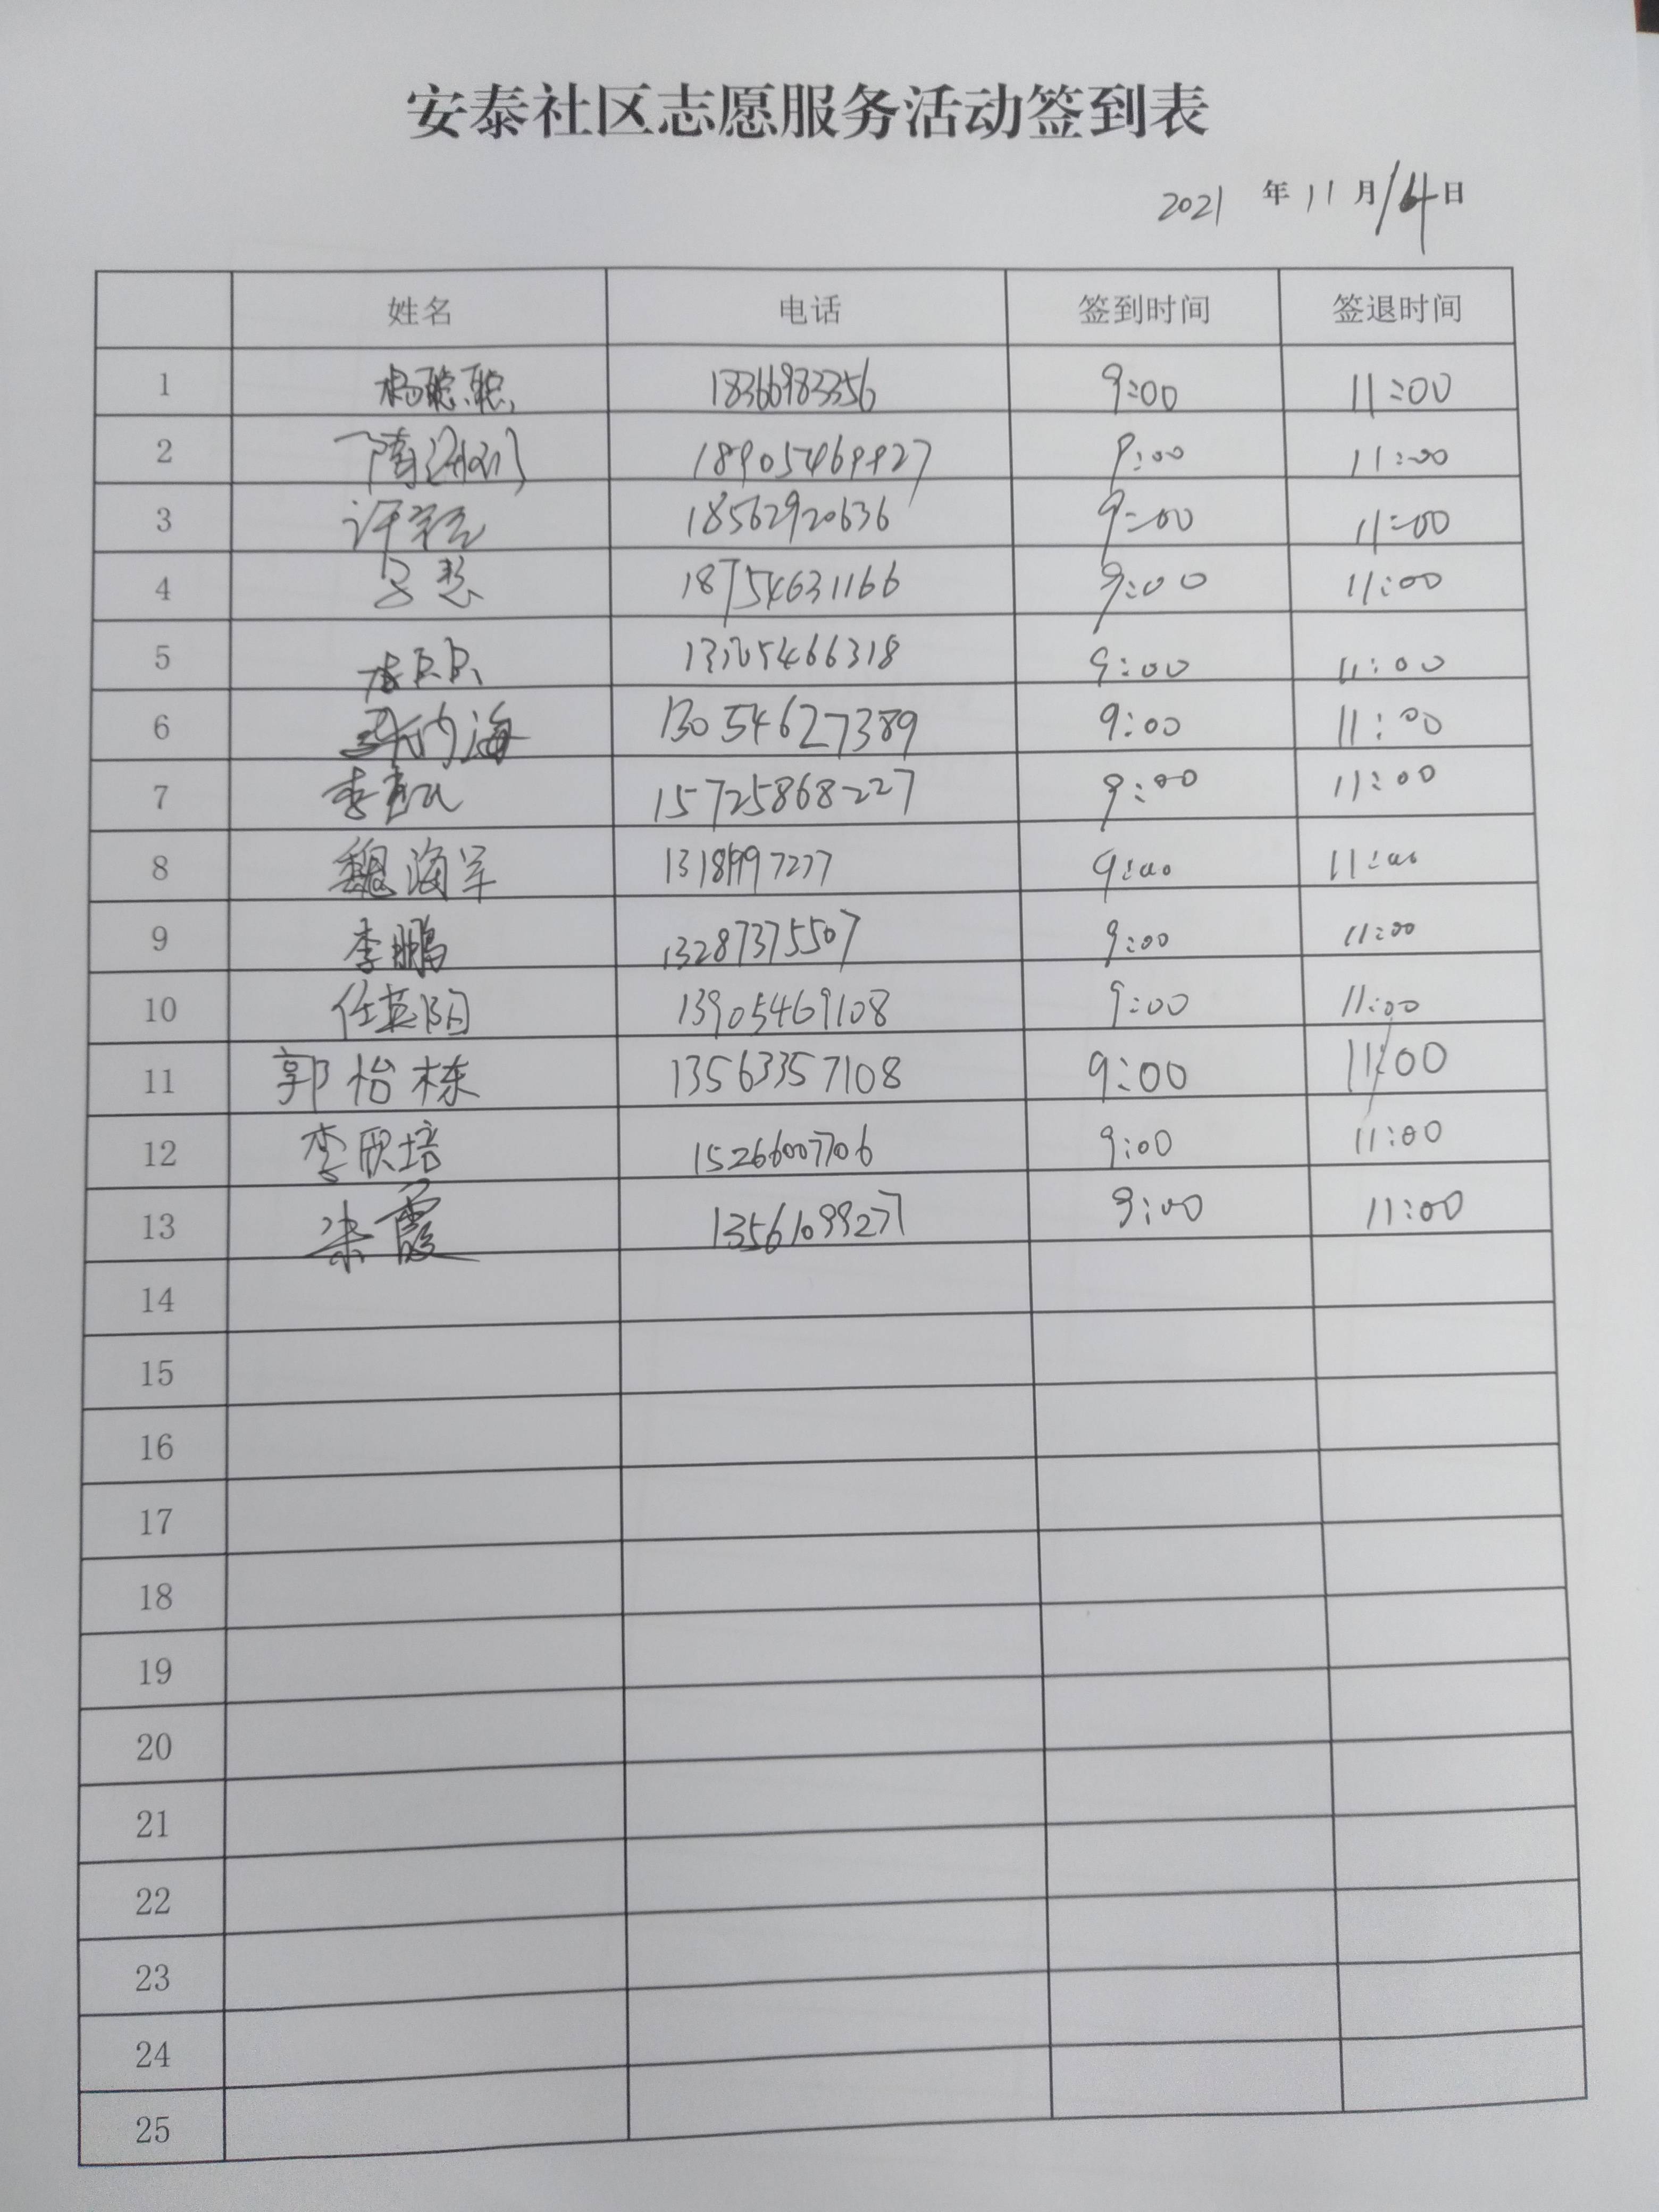 安泰社区志愿服务活动签到表
2021 年 11 月 14 日
姓名 电话 签到时间 签退时间
1 杨聪聪 18366983356 9:00 11:00
2 9:00 11:00
3 许 18562920636 9:00 11:00
4 吕慧 18754631166 9:00 11:00
5 9:00 11:00
6 海 13054627389 9:00 11:00
7 李 15725868227 9:00 11:00
8 魏海军 9:00 11:00
9 李鹏 13287375507 9:00 11:00
10 任英阳 13905469108 9:00 11:00
11 郭怡栋 13563357108 9:00 11:00
12 李欣培 15266007706 9:00 11:00
13 霞 13561099271 9:00 11:00
14
15
16
17
18
19
20
21
22
23
24
25